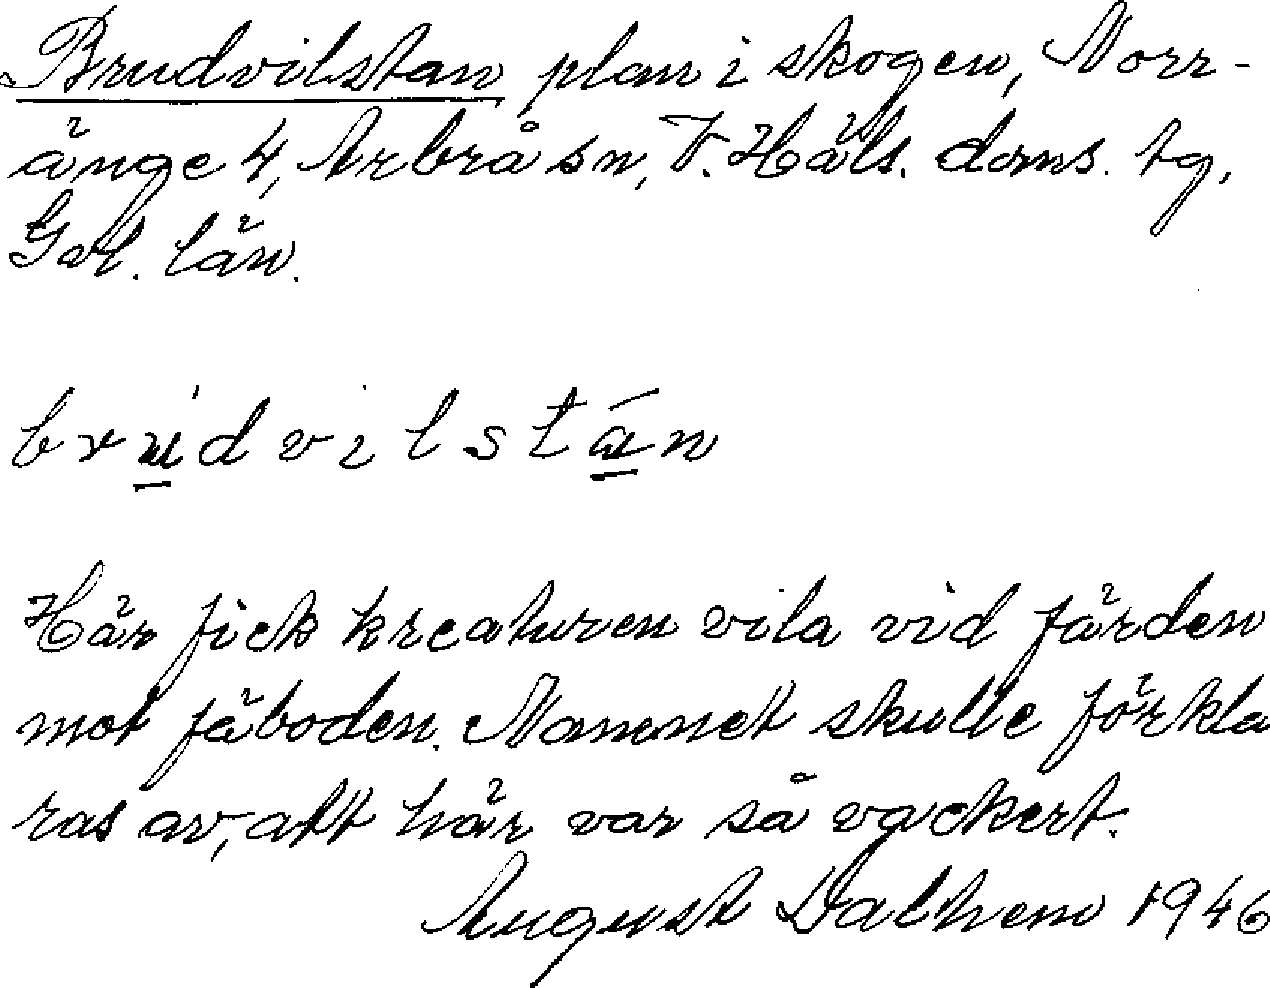 Brudvilstan plan i skogen, Norr-
änge 4, Arbrå sn, V. Häls. doms. tg,
Gvl. län.
brudvilstán
Här fick kreaturen vila vid färden
mot fäboden. Namnet skulle förkla
ras av, att här var så vackert.
August Dalhem 1946